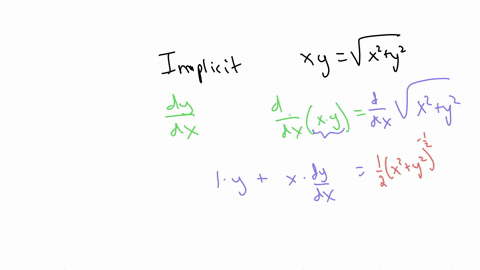 Implicit xy = √(x²+y²)
dy/dx d/dx (x·y) = d/dx √(x²+y²)
1·y + x·dy/dx = 1/2 (x²+y²)^(-1/2)